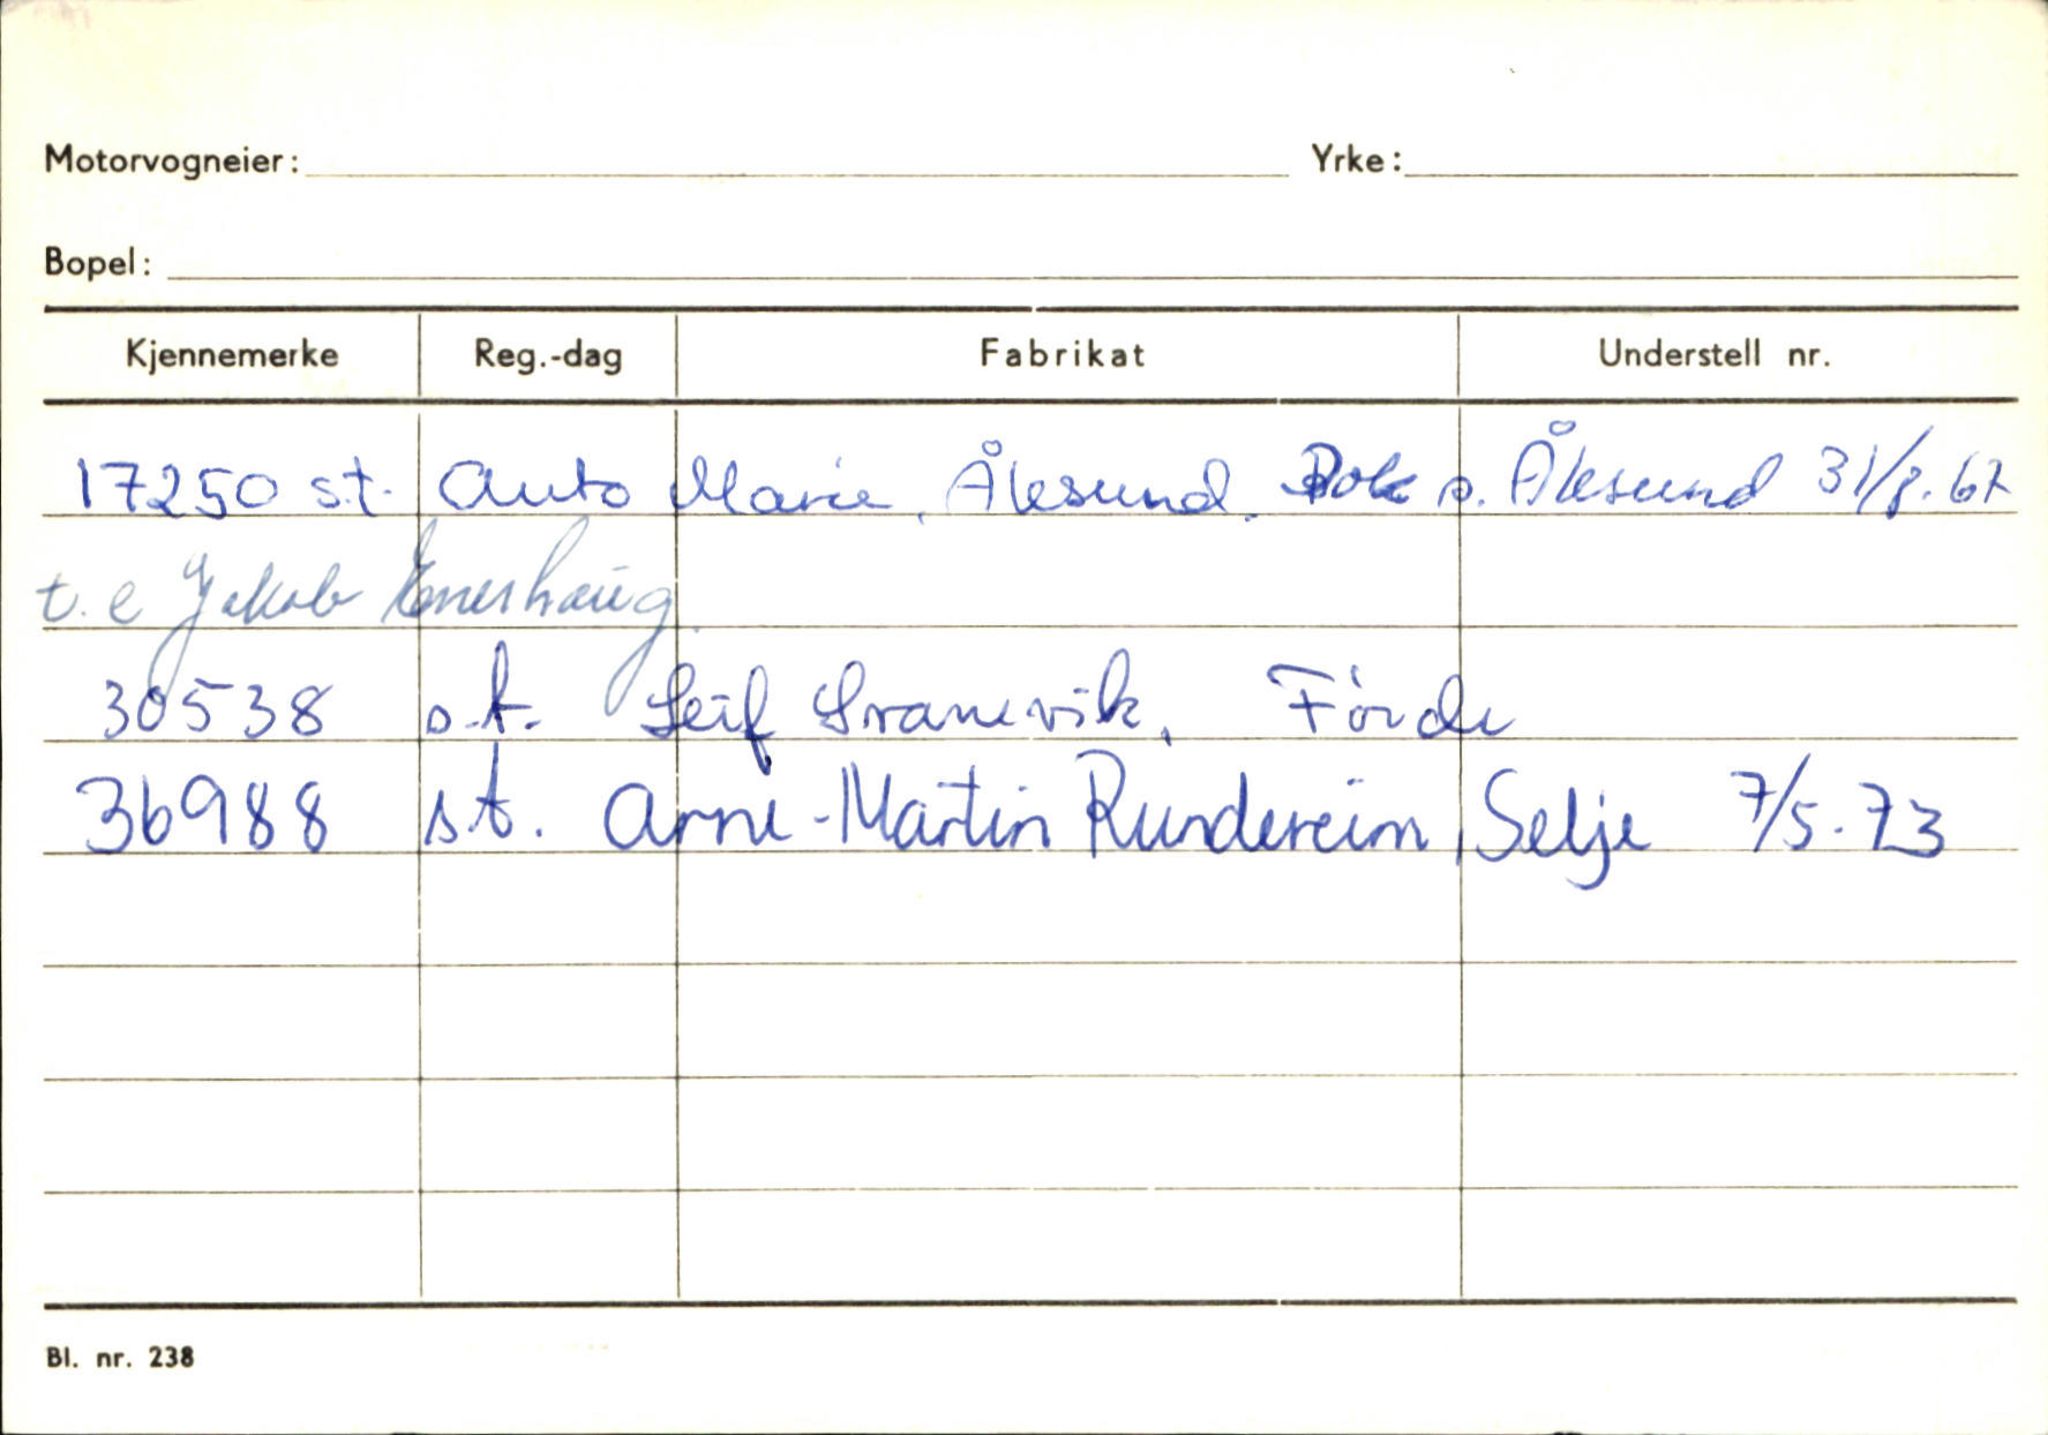 Motorvogneier: Yrke:
Bopel:
Kjennemerke Reg.-dag Fabrikat Understell nr.
17250 s.t. Auto Marie, Ålesund. Bok s. Ålesund 31/8.67
t.e Jakob Enerhaug
30538 s.t. Leif Svanevik, Förde
36988 s.t. Arne-Martin Rundereim, Selje 7/5-73
Bl. nr. 238